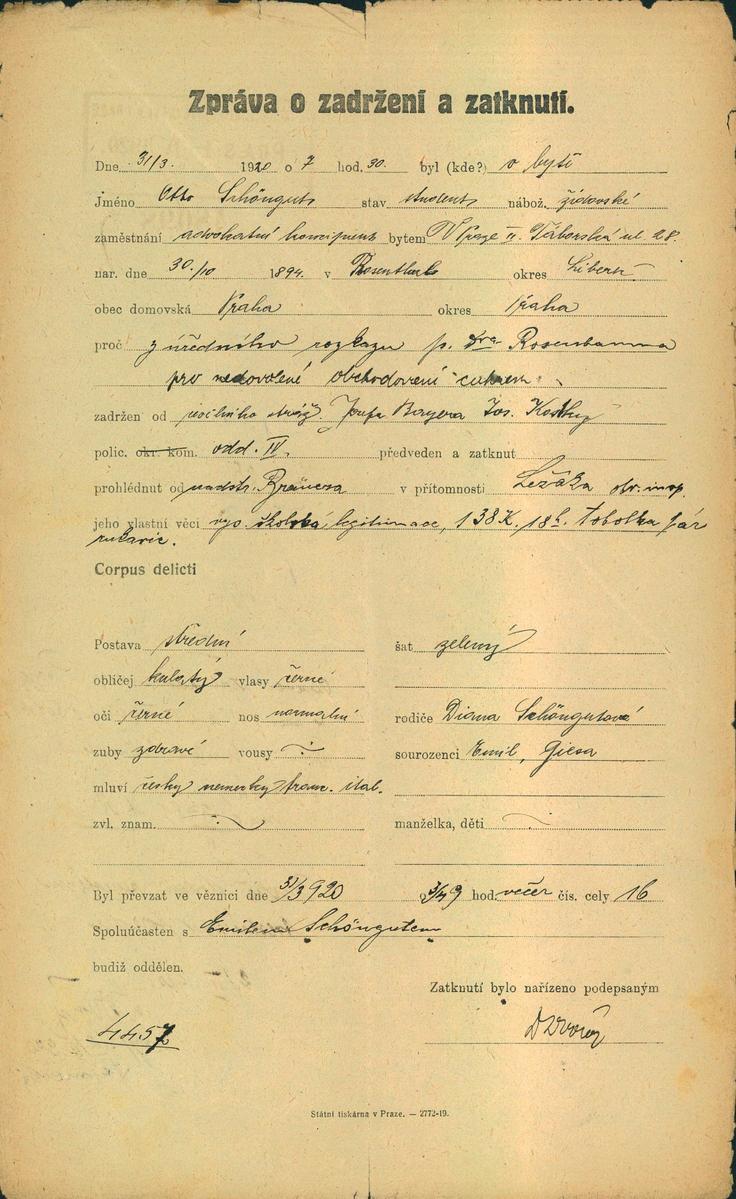 Zpráva o zadržení a zatknutí.
Dne 31/3. 1920 o 7 hod. 30. byl (kde?) v bytě
Jméno Otto Schöngut stav student nábož. židovské
zaměstnání advokátní koncipient bytem V Praze II. Táborská ul. 28.
nar. dne 30./10 1894. v Rosenthal okres Liberec
obec domovská Praha okres Praha
proč z úředního rozkazu p. Dra Rosenbauma
pro nedovolené obchodování cukrem
zadržen od stráž. Josefa Bayera Jos. Kostky
polic. okr. kom. odd. IV. předveden a zatknut
prohlédnut od nadstr. v přítomnosti Ležáka str. insp.
jeho vlastní věci vys. školská legitimace, 138 K, 18 h. tobolka pár
rukavic.
Corpus delicti
Postava střední šat zelený
obličej kulatý vlasy černé
oči černé nos normální rodiče Diana Schöngutová
zuby zdravé vousy sourozenci Emil, Gisa
mluví česky německy franc. ital.
zvl. znam. manželka, děti
Byl převzat ve věznici dne 31/3 920 o 3/4 9 hod. večer čís. cely 16
Spoluúčasten s Emilem Schöngutem
budiž oddělen.
Zatknutí bylo nařízeno podepsaným
4457
Státní tiskárna v Praze. — 2772-19.